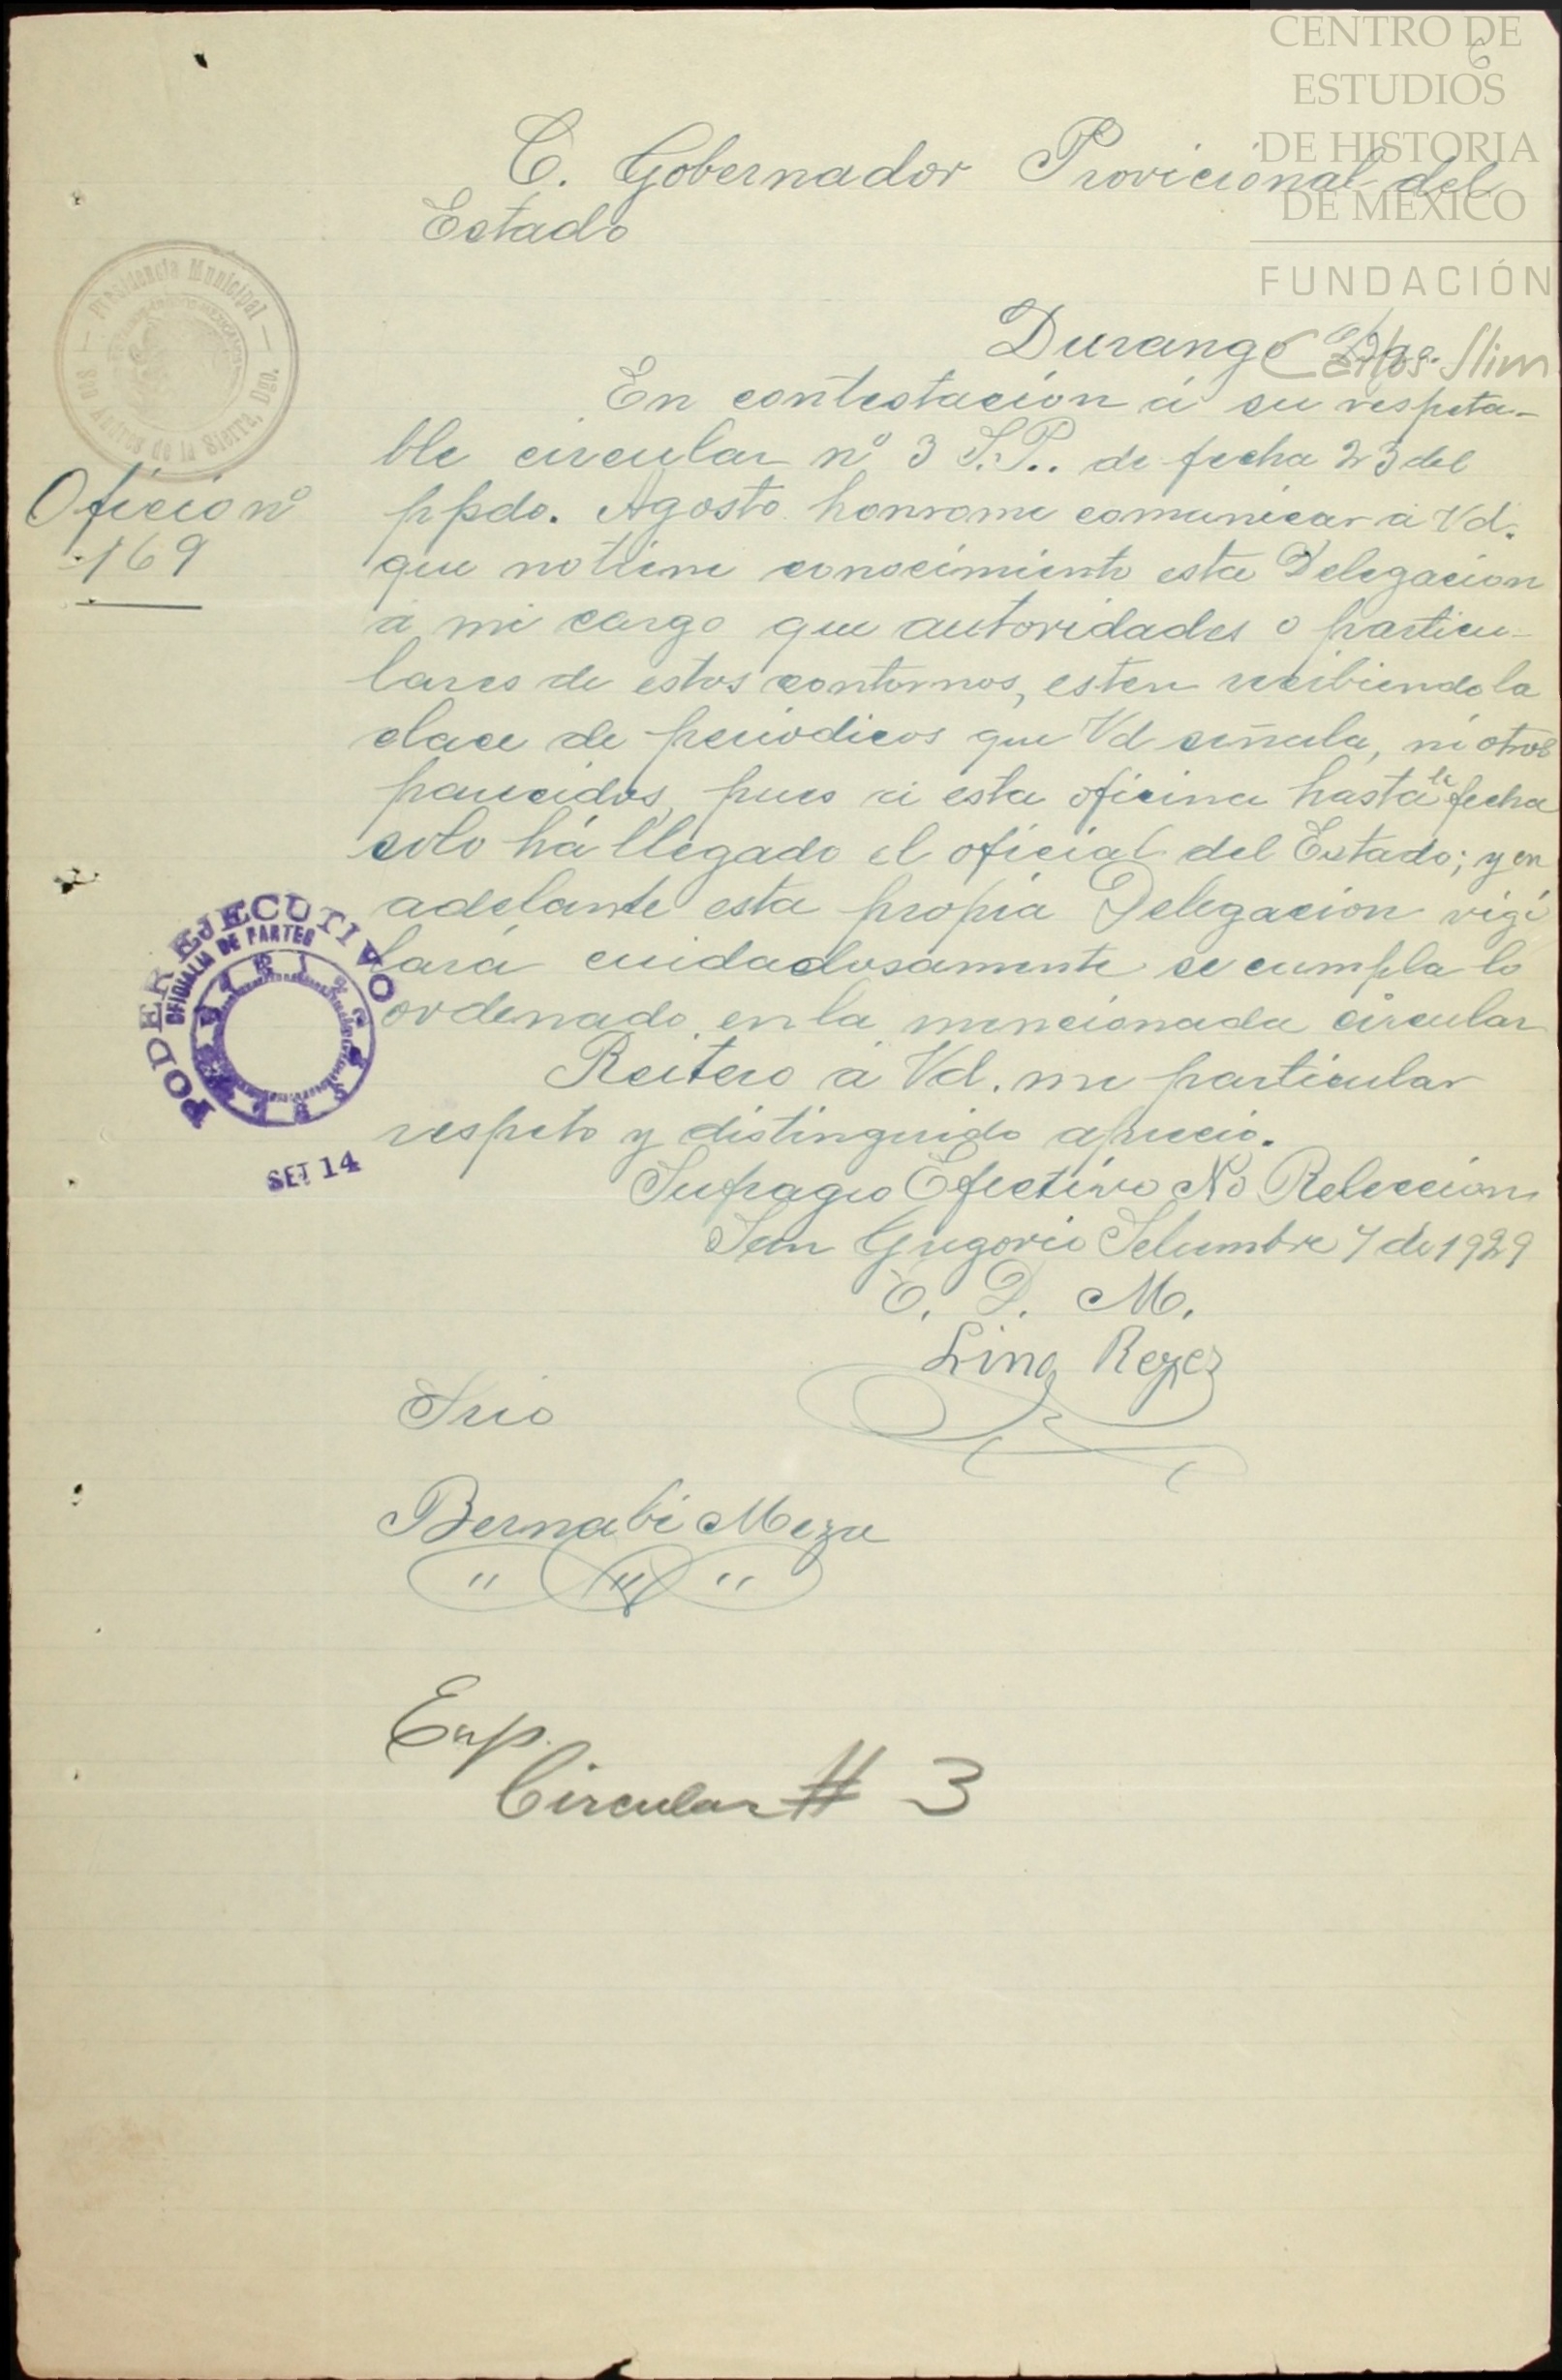 CENTRO DE
ESTUDIOS
DE HISTORIA
DE MÉXICO
FUNDACIÓN
Carlos Slim
6
C. Gobernador Provicional del
Estado
Durango Dgo.
Presidencia Municipal
San Andres de la Sierra, Dgo.
Oficio nº
169
En contestacion á su respeta-
ble circular nº 3 S.P.. de fecha 23 del
ppdo. Agosto honrome comunicar a Vd.
que no tiene conocimiento esta Delegacion
a mi cargo que autoridades o particu-
lares de estos contornos, esten recibiendo la
clace de periodicos que Vd señala, ni otros
parecidos, pues a esta oficina hasta la fecha
solo há llegado el oficial del Estado; y en
adelante esta propia Delegacion vigi
lará cuidadosamente se cumpla lo
ordenado en la mencionada circular
Reitero a Vd. mi particular
respeto y distinguido aprecio.
Sufragio Efectivo No Releccion
San Gregorio Setiembre 7 de 1929
E. D. M.
Lino Reyes
PODER EJECUTIVO
OFICIALIA DE PARTES
SET 14
Srio
Bernabé Meza
" " "
Exp.
Circular # 3